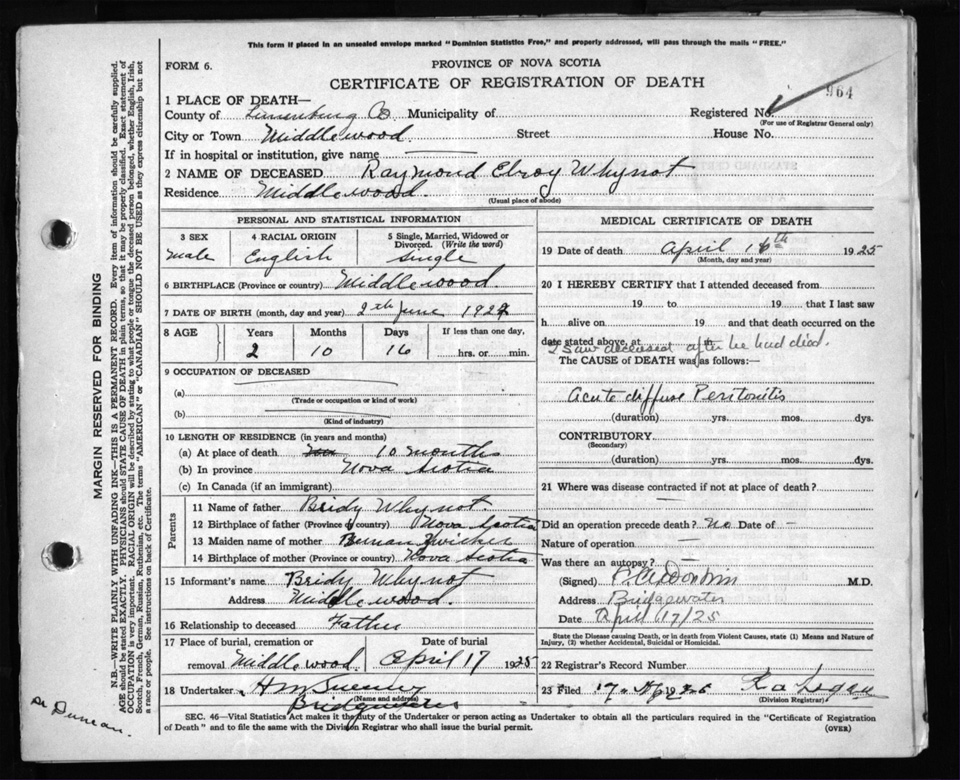 This form if placed in an unsealed envelope marked "Dominion Statistics Free," and properly addressed, will pass through the mails "FREE."
FORM 6.
PROVINCE OF NOVA SCOTIA
CERTIFICATE OF REGISTRATION OF DEATH
964
1 PLACE OF DEATH—
County of Lunenburg Co. Municipality of Registered No.
(For use of Registrar General only)
City or Town Middlewood. Street House No.
If in hospital or institution, give name
2 NAME OF DECEASED Raymond Elroy Whynot
Residence Middlewood.
(Usual place of abode)
PERSONAL AND STATISTICAL INFORMATION
3 SEX 4 RACIAL ORIGIN 5 Single, Married, Widowed or Divorced. (Write the word)
male English Single
6 BIRTHPLACE (Province or country) Middlewood.
7 DATE OF BIRTH (month, day and year) 2th June 1922
8 AGE Years Months Days If less than one day,
2 10 16 hrs. or min.
9 OCCUPATION OF DECEASED
(a)
(Trade or occupation or kind of work)
(b)
(Kind of industry)
10 LENGTH OF RESIDENCE (in years and months)
(a) At place of death 10 months
(b) In province Nova Scotia
(c) In Canada (if an immigrant)
Parents
11 Name of father Bridy Whynot.
12 Birthplace of father (Province or country) Nova Scotia
13 Maiden name of mother Zwicker
14 Birthplace of mother (Province or country) Nova Scotia
15 Informant's name Bridy Whynot
Address Middlewood.
16 Relationship to deceased Father
17 Place of burial, cremation or Date of burial
removal Middlewood. April 17 1925
18 Undertaker H M
(Name and address)
Bridgewater
MEDICAL CERTIFICATE OF DEATH
19 Date of death April 16th 1925
(Month, day and year)
20 I HEREBY CERTIFY that I attended deceased from
19 to 19 that I last saw
h alive on 19 and that death occurred on the
date stated above, at
I saw deceased after he had died.
The CAUSE of DEATH was as follows:
Acute diffuse Peritonitis
(duration) yrs. mos. dys.
CONTRIBUTORY
(Secondary)
(duration) yrs. mos. dys.
21 Where was disease contracted if not at place of death?
Did an operation precede death? no Date of —
Nature of operation —
Was there an autopsy? —
(Signed) M.D.
Address Bridgewater
Date April 17/25
State the Disease causing Death, or in death from Violent Causes, state (1) Means and Nature of
Injury, (2) whether Accidental, Suicidal or Homicidal.
22 Registrar's Record Number
23 Filed 17
(Division Registrar)
SEC. 46—Vital Statistics Act makes it the duty of the Undertaker or person acting as Undertaker to obtain all the particulars required in the "Certificate of Registration
of Death" and to file the same with the Division Registrar who shall issue the burial permit. (OVER)
MARGIN RESERVED FOR BINDING
N.B.—WRITE PLAINLY WITH UNFADING INK—THIS IS A PERMANENT RECORD. Every item of information should be carefully supplied.
AGE should be stated EXACTLY. PHYSICIANS should STATE CAUSE OF DEATH in plain terms, so that it may be properly classified. Exact statement of
OCCUPATION is very important. RACIAL ORIGIN will be described by stating to what people or tongue the deceased person belonged, whether English, Irish,
Scotch, French, German, Russian, Ruthenian, etc. The terms "AMERICAN" or "CANADIAN" SHOULD NOT BE USED as they express citizenship but not
a race or people. See instructions on back of Certificate.
Dr Duncan.